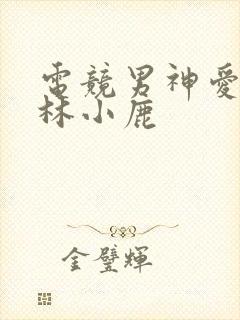 電競男神愛
林小鹿
金璧輝